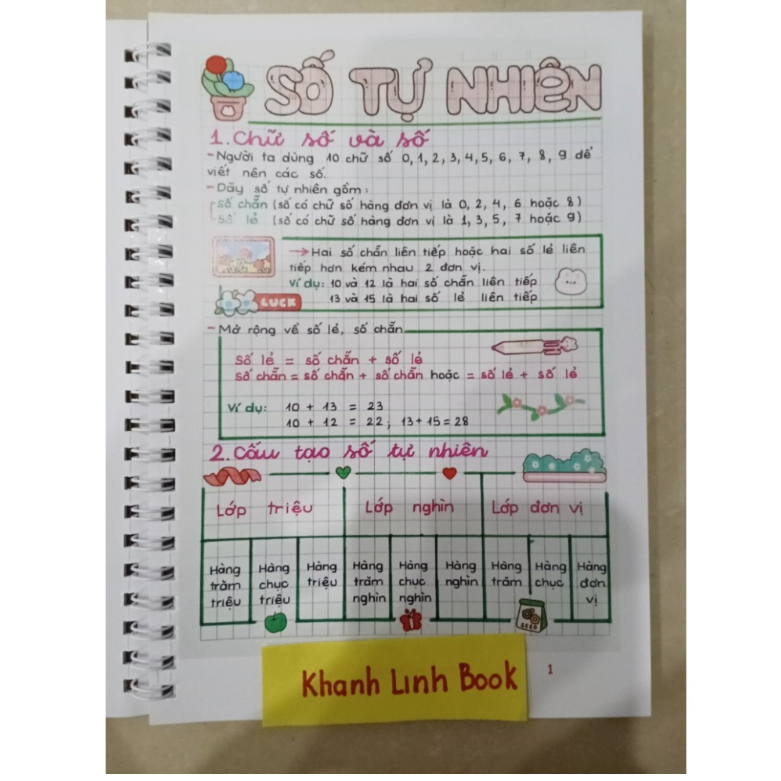 SỐ TỰ NHIÊN
1. Chữ số và số
- Người ta dùng 10 chữ số 0, 1, 2, 3, 4, 5, 6, 7, 8, 9 để
viết nên các số.
- Dãy số tự nhiên gồm:
số chẵn (số có chữ số hàng đơn vị là 0, 2, 4, 6 hoặc 8)
số lẻ (số có chữ số hàng đơn vị là 1, 3, 5, 7 hoặc 9)
→ Hai số chẵn liên tiếp hoặc hai số lẻ liên
tiếp hơn kém nhau 2 đơn vị.
Ví dụ: 10 và 12 là hai số chẵn liên tiếp
13 và 15 là hai số lẻ liên tiếp
LUCK
- Mở rộng về số lẻ, số chẵn
Số lẻ = số chẵn + số lẻ
Số chẵn = số chẵn + số chẵn hoặc = số lẻ + số lẻ
Ví dụ: 10 + 13 = 23
10 + 12 = 22; 13 + 15 = 28
2. Cấu tạo số tự nhiên
Lớp triệu Lớp nghìn Lớp đơn vị
Hàng trăm triệu Hàng chục triệu Hàng triệu Hàng trăm nghìn Hàng chục nghìn Hàng nghìn Hàng trăm Hàng chục Hàng đơn vị
SEED
Khanh Linh Book
1